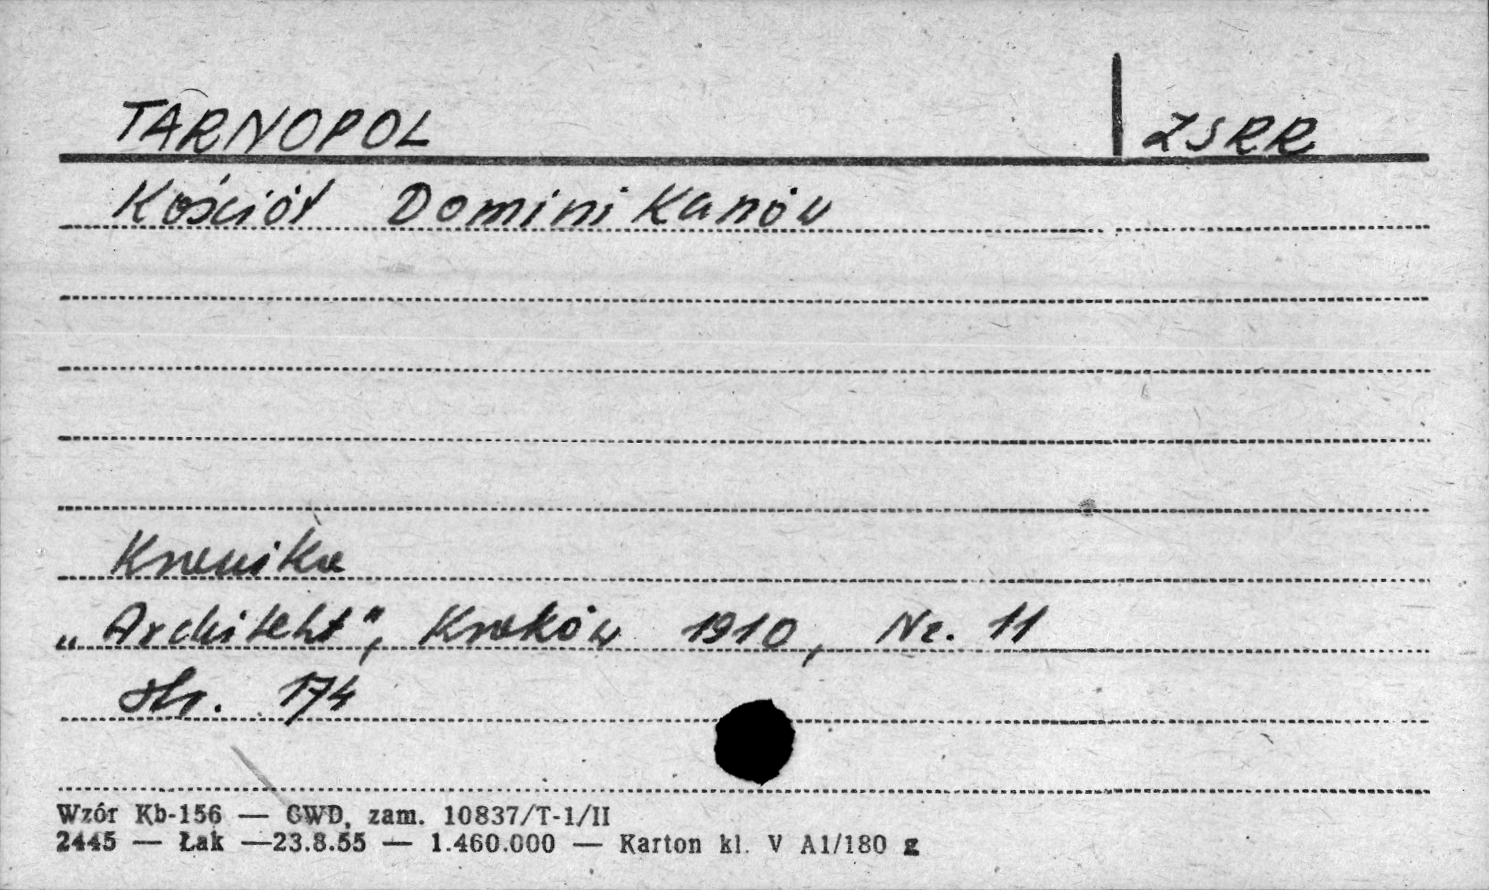 TARNOPOL ZSRR
Kościół Dominikanów
Kronika
„Architekt", Kraków 1910, Nr. 11
str. 174
Wzór Kb-156 — CWD, zam. 10837/T-1/II
2445 — Łak —23.8.55 — 1.460.000 — Karton kl. V A1/180 g